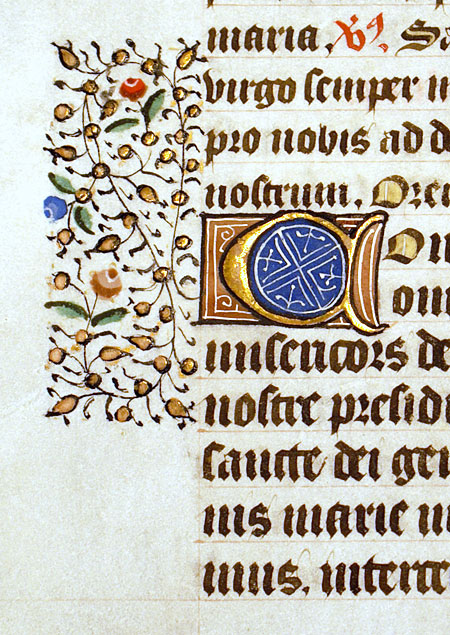 maria. Sa
virgo semper
pro nobis ad d
nostrum. Ore
C On
misericors de
nostre presidi
sancte dei ge
nis marie m
mus, interce